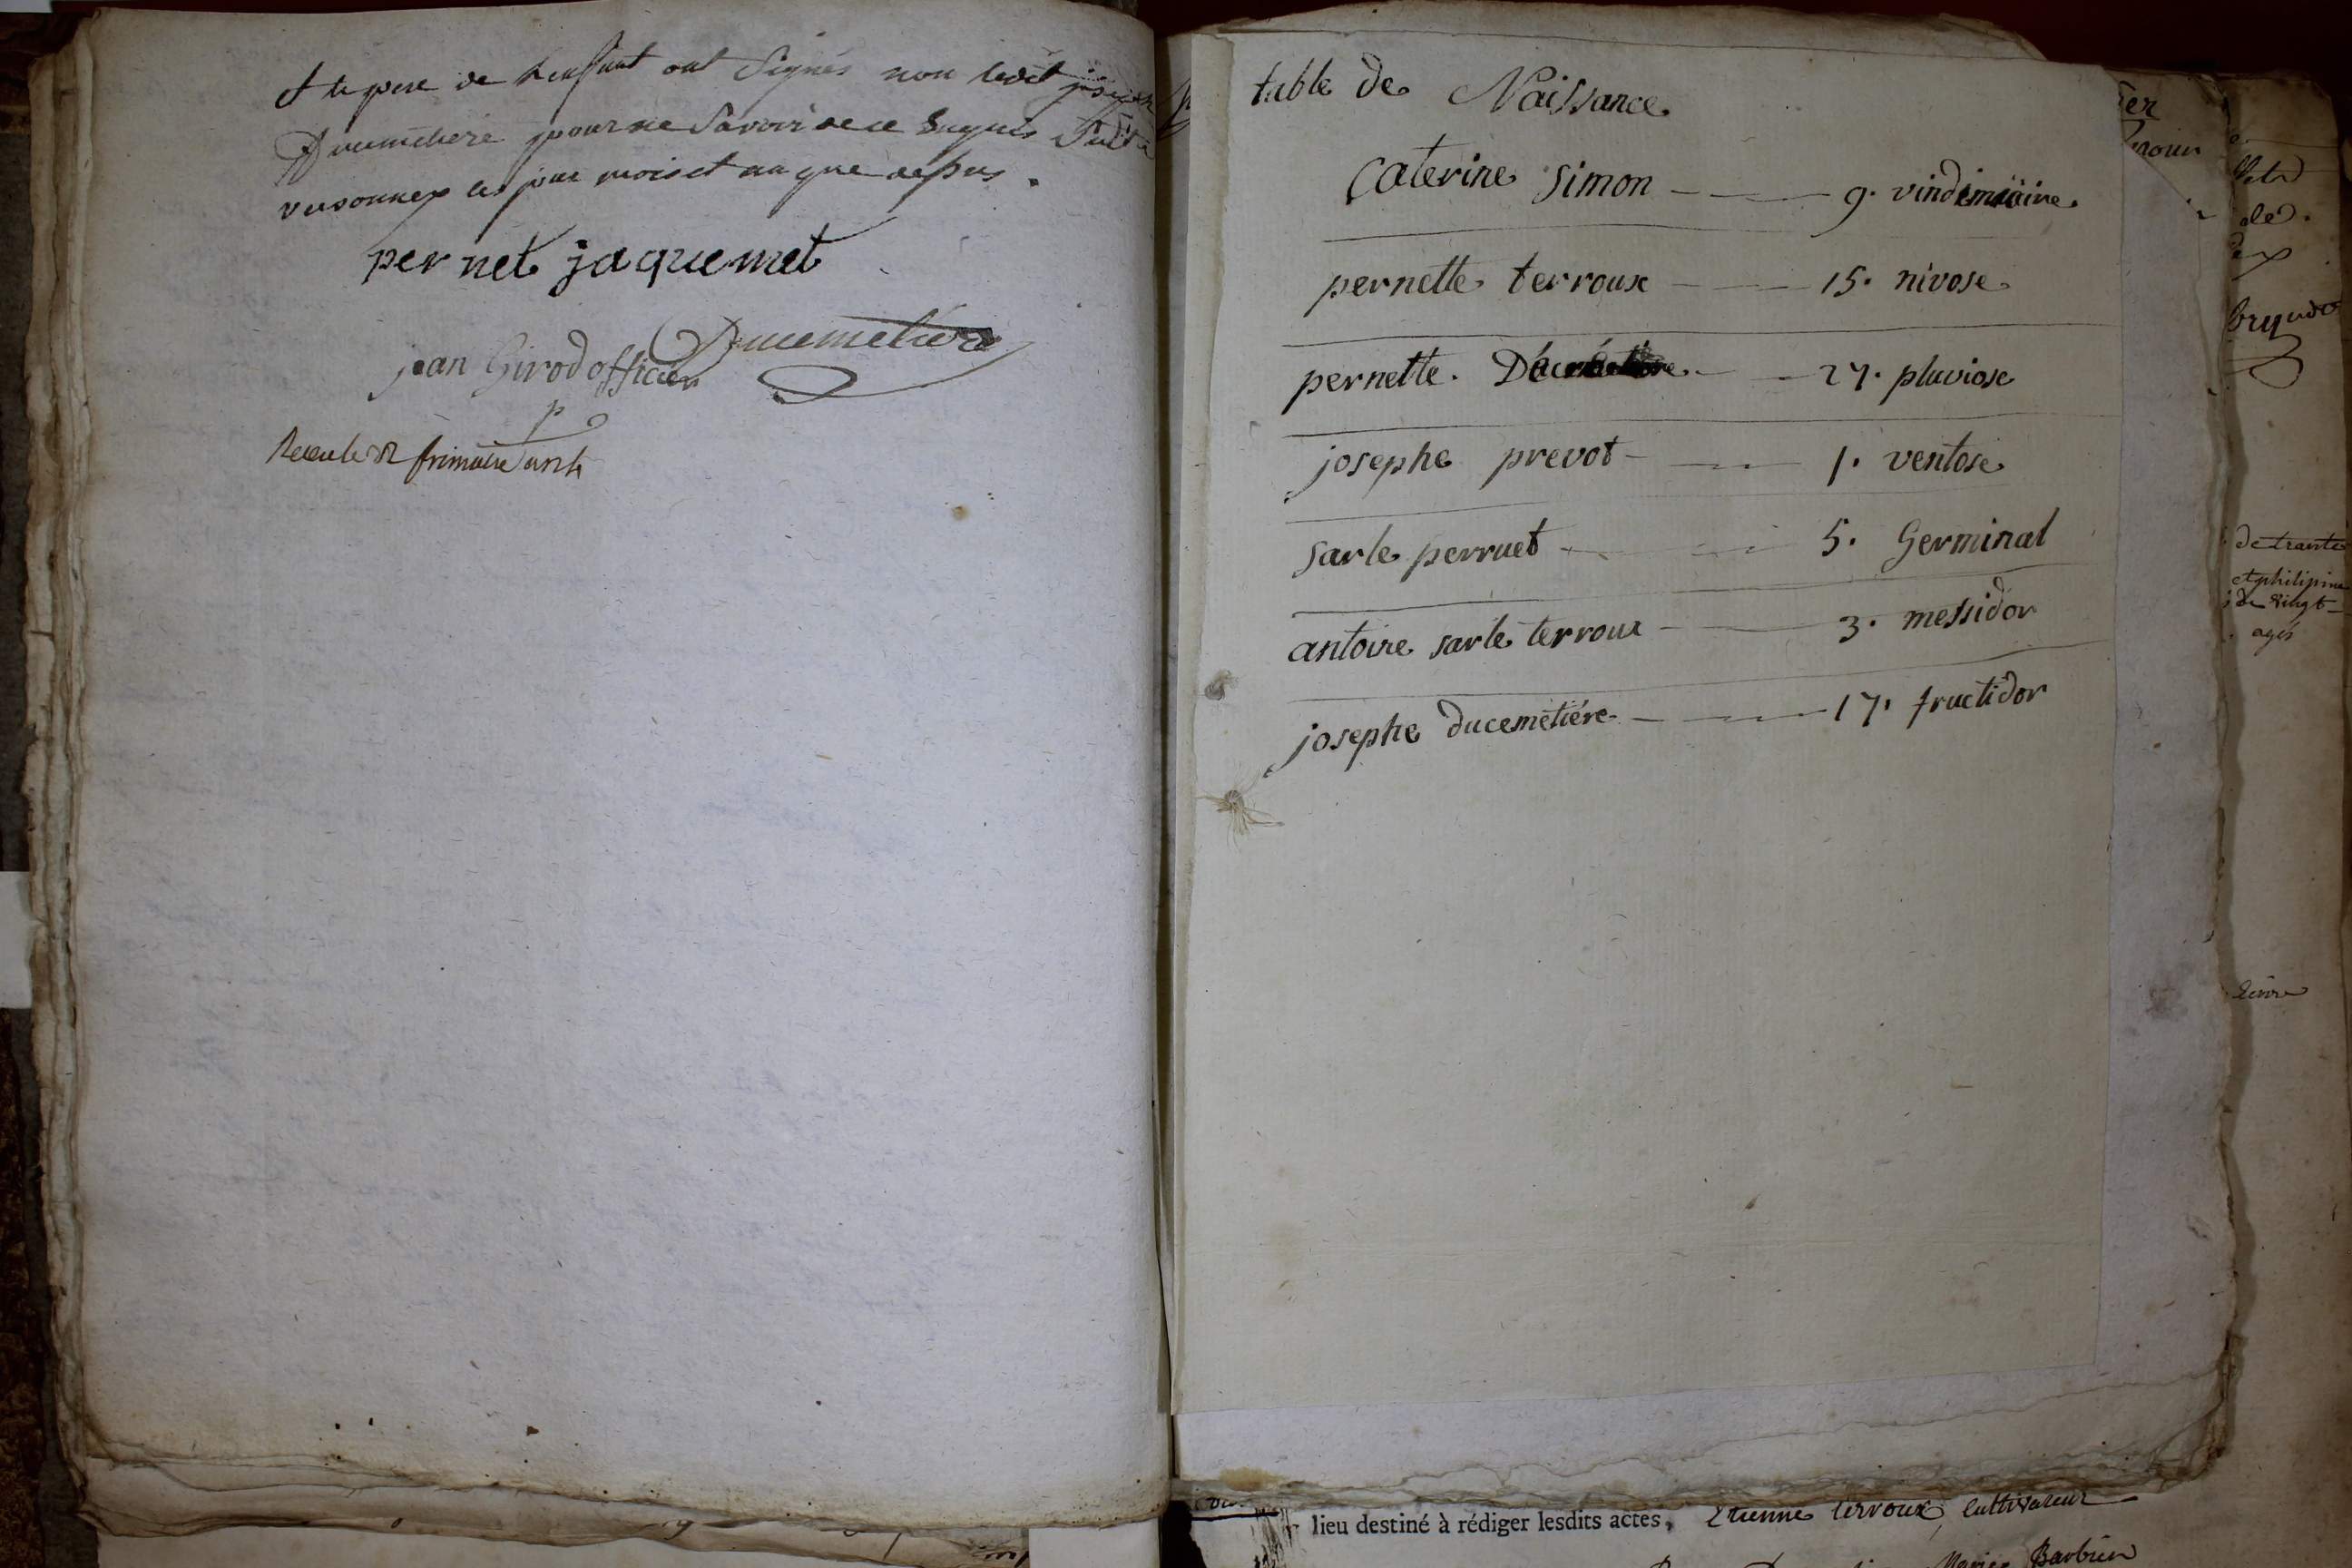 et le pere de lenfant ont signés non ledit joseph
Ducimetiere pour ne savoir de ce enquis
versonnex les jour mois et an que dessus.
pernet jaquemet
Ducimetiere
jean Girod officier
p
frimaire
table de Naissance
Caterine simon 9. vindimiaire
pernette terroux 15. nivose
pernette. 27. pluviose
josephe prevot 1. ventose
sarle perruet 5. Germinal
antoire sarle terroux 3. messidor
josephe ducemetiére 17. fructidor
de trante
et philipine
de vingt
agés
lieu destiné à rédiger lesdits actes, Etienne terroux, Cultivateur
Barbier